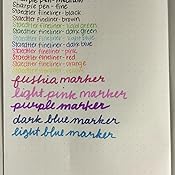 Sharpie pen - medium
Sharpie pen - fine
Staedtler fineliner - black
Staedtler fineliner - brown
Staedtler fineliner - light green
Staedtler fineliner - dark green
Staedtler fineliner - light blue
Staedtler fineliner - dark blue
Staedtler fineliner - pink
Staedtler fineliner - red
Staedtler fineliner - orange
Staedtler fineliner -
fushia marker
light pink marker
purple marker
dark blue marker
light blue marker